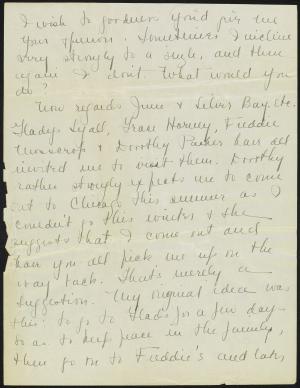 I wish to goodness you'd give me
your opinion. Sometimes I incline
very strongly to a single, and then
again I don't. What would you
do?
Now regards June & Silver Bay, etc.
Gladys Lyall, Fran Horney, Freddie
& Dorothy Parker have all
invited me to visit them. Dorothy
rather strongly expects me to come
out to Chicago this summer as I
couldn't go this winter & she
suggests that I come out and
have you all pick me up on the
way back. That's merely a
suggestion. My original idea was
this: to go to Glad's for a few days
so as to keep peace in the family,
then go on to Freddie's and later